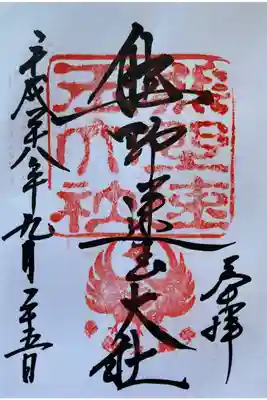 奉拝
熊野速玉大社
熊野速
玉大社
平成廿八年九月二十五日